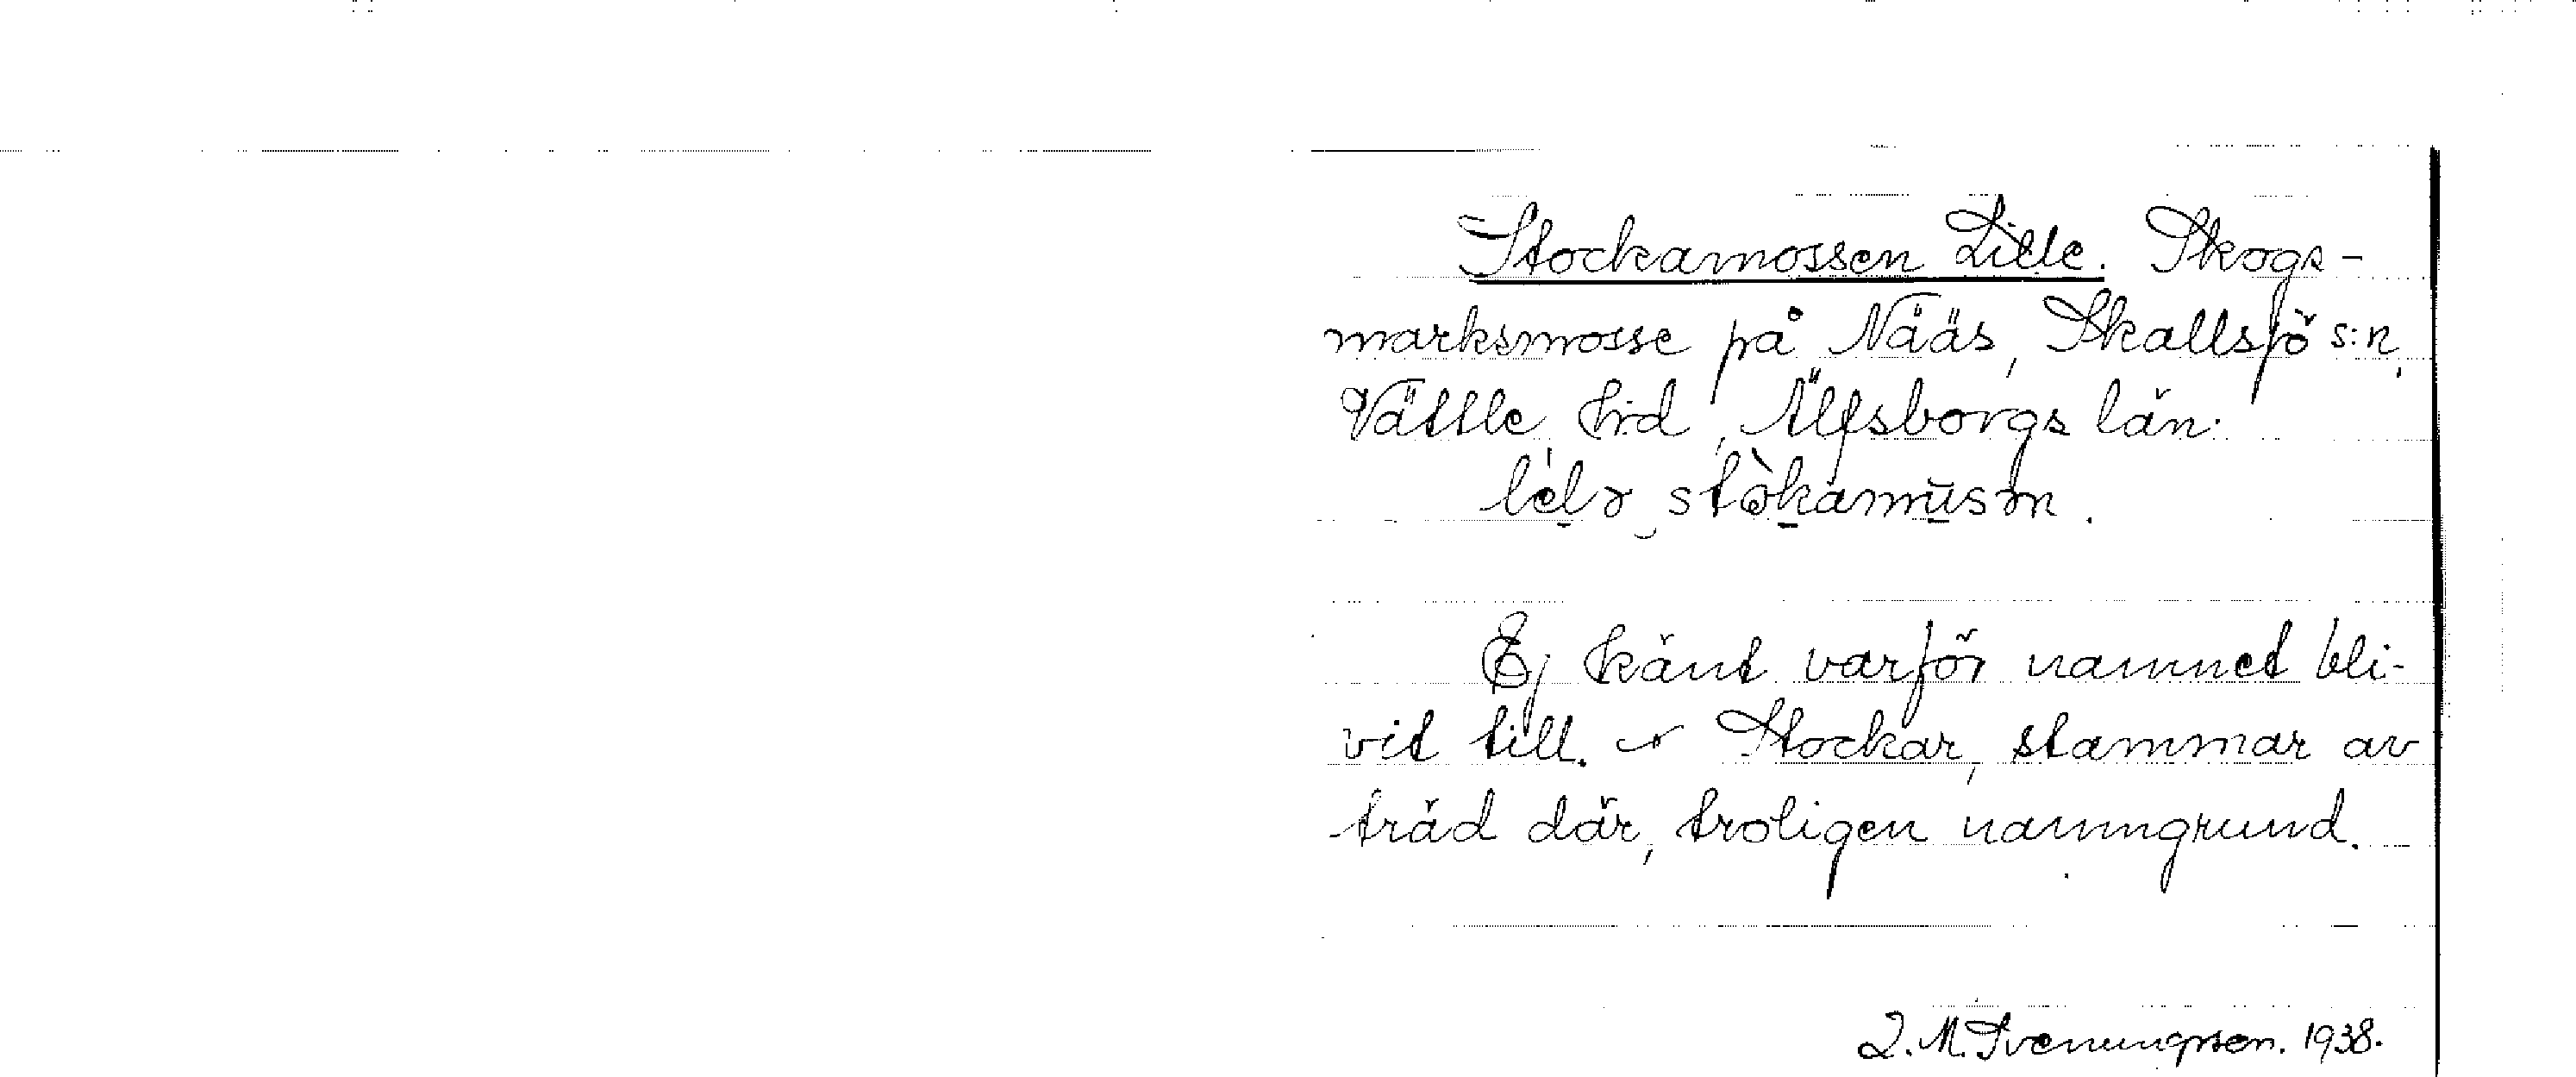 Stockamossen Lille. Skogs-
marksmosse på Nääs, Skallsjö s:n,
Vättle hd, Älfsborgs län.
Ej känt varför namnet bli-
vit till. Stockar, stammar av
träd där, troligen namngrund.
1938.